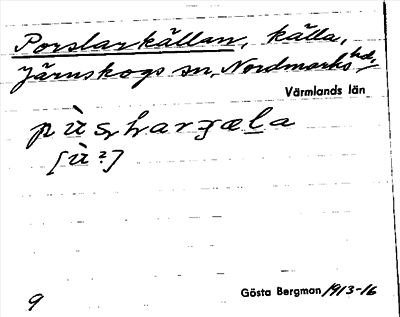 Porslarkällan, källa,
Järnskogs sn, Nordmarks hd,
Värmlands län
[ù ?]
Gösta Bergman 1913-16
9